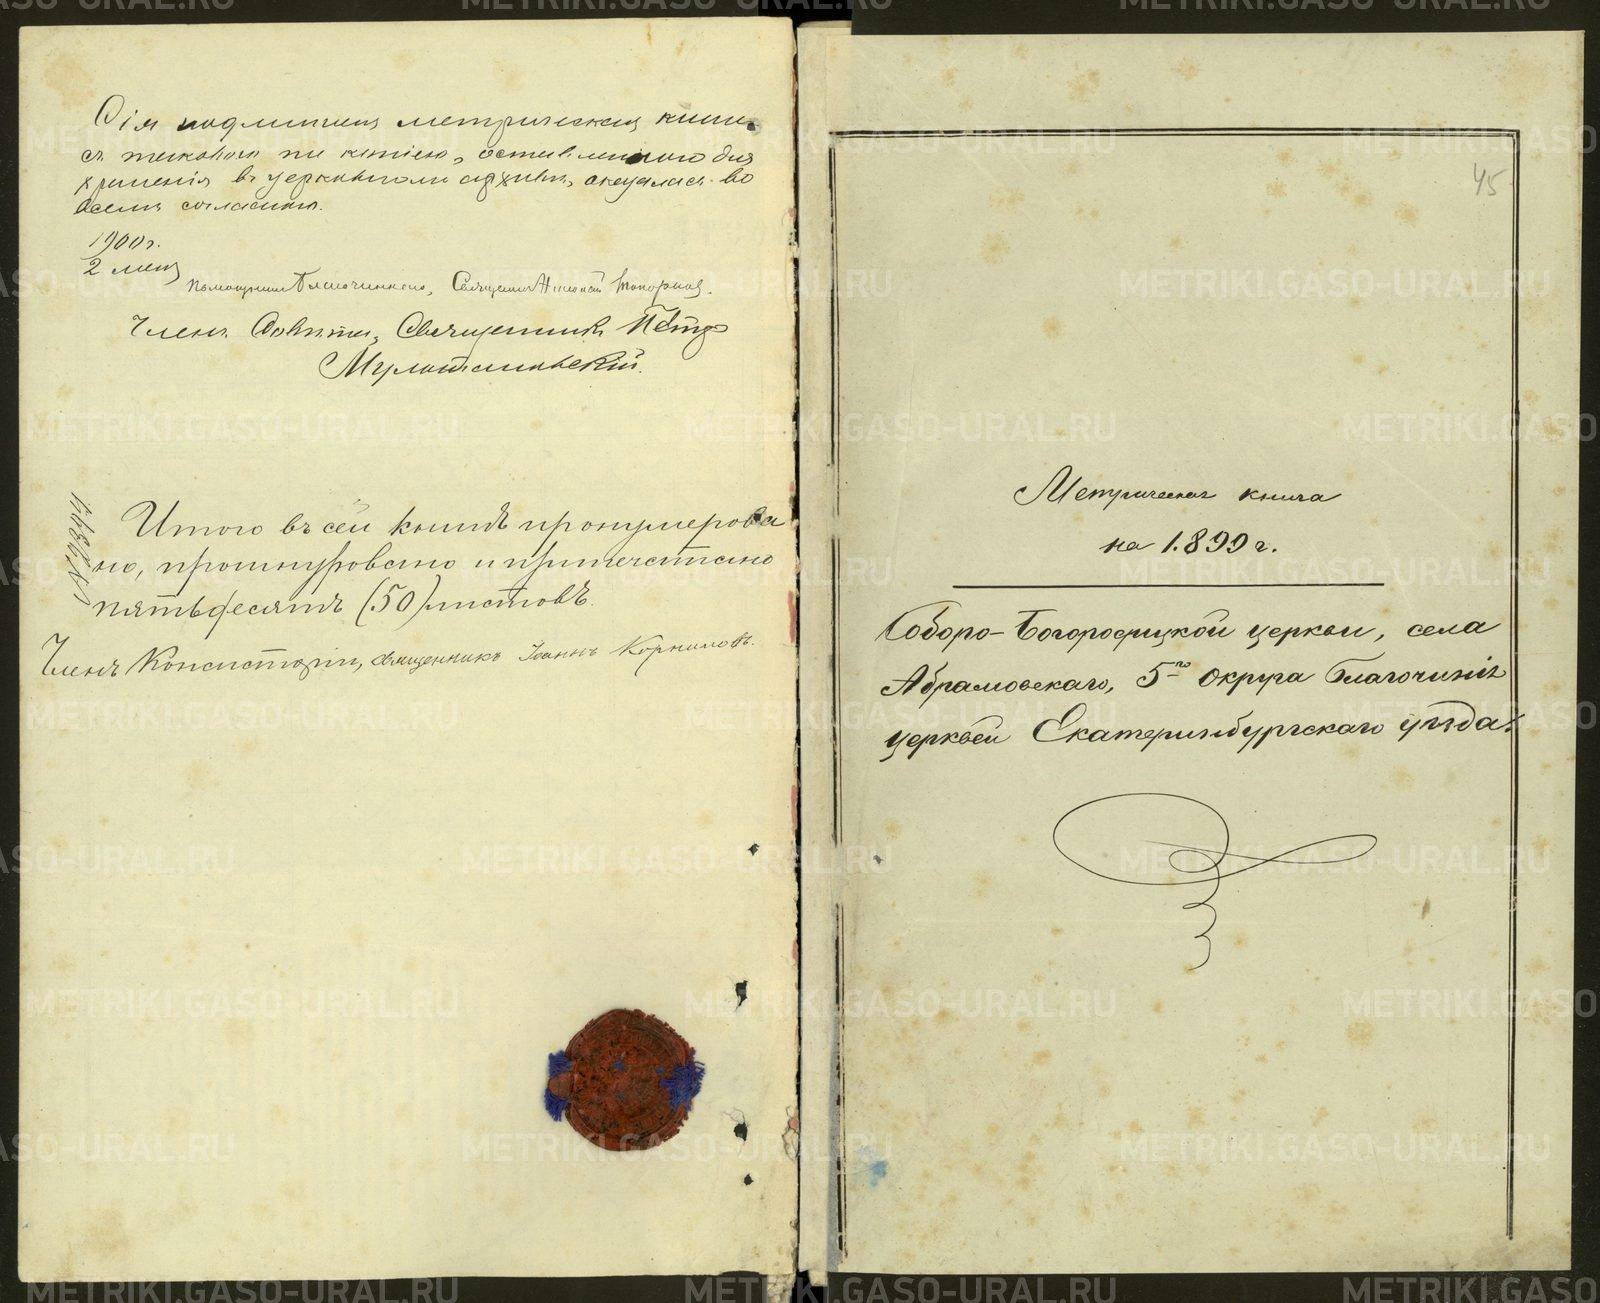 Сія подлинная метрическая книга
съ таковою же копіею, оставленною для
храненія въ церковномъ архивѣ, оказалась во
всемъ согласною.
1900 г.
2 мая
Помощникъ Благочиннаго, Священникъ Николай Топорковъ.
Членъ Совѣта, Священникъ Пётръ
Мультановскій.
Итого въ сей книгѣ пронумерова
но, прошнуровано и припечатано
пятьдесятъ (50) листовъ.
Членъ Консисторіи, священникъ Іоаннъ Корниловъ.
45
Метрическая книга
на 1.899 г.
Соборо-Богородицкой церкви, села
Абрамовскаго, 5-го округа Благочинія
церквей Екатеринбургскаго уѣзда.
METRIKI.GASO-URAL.RU